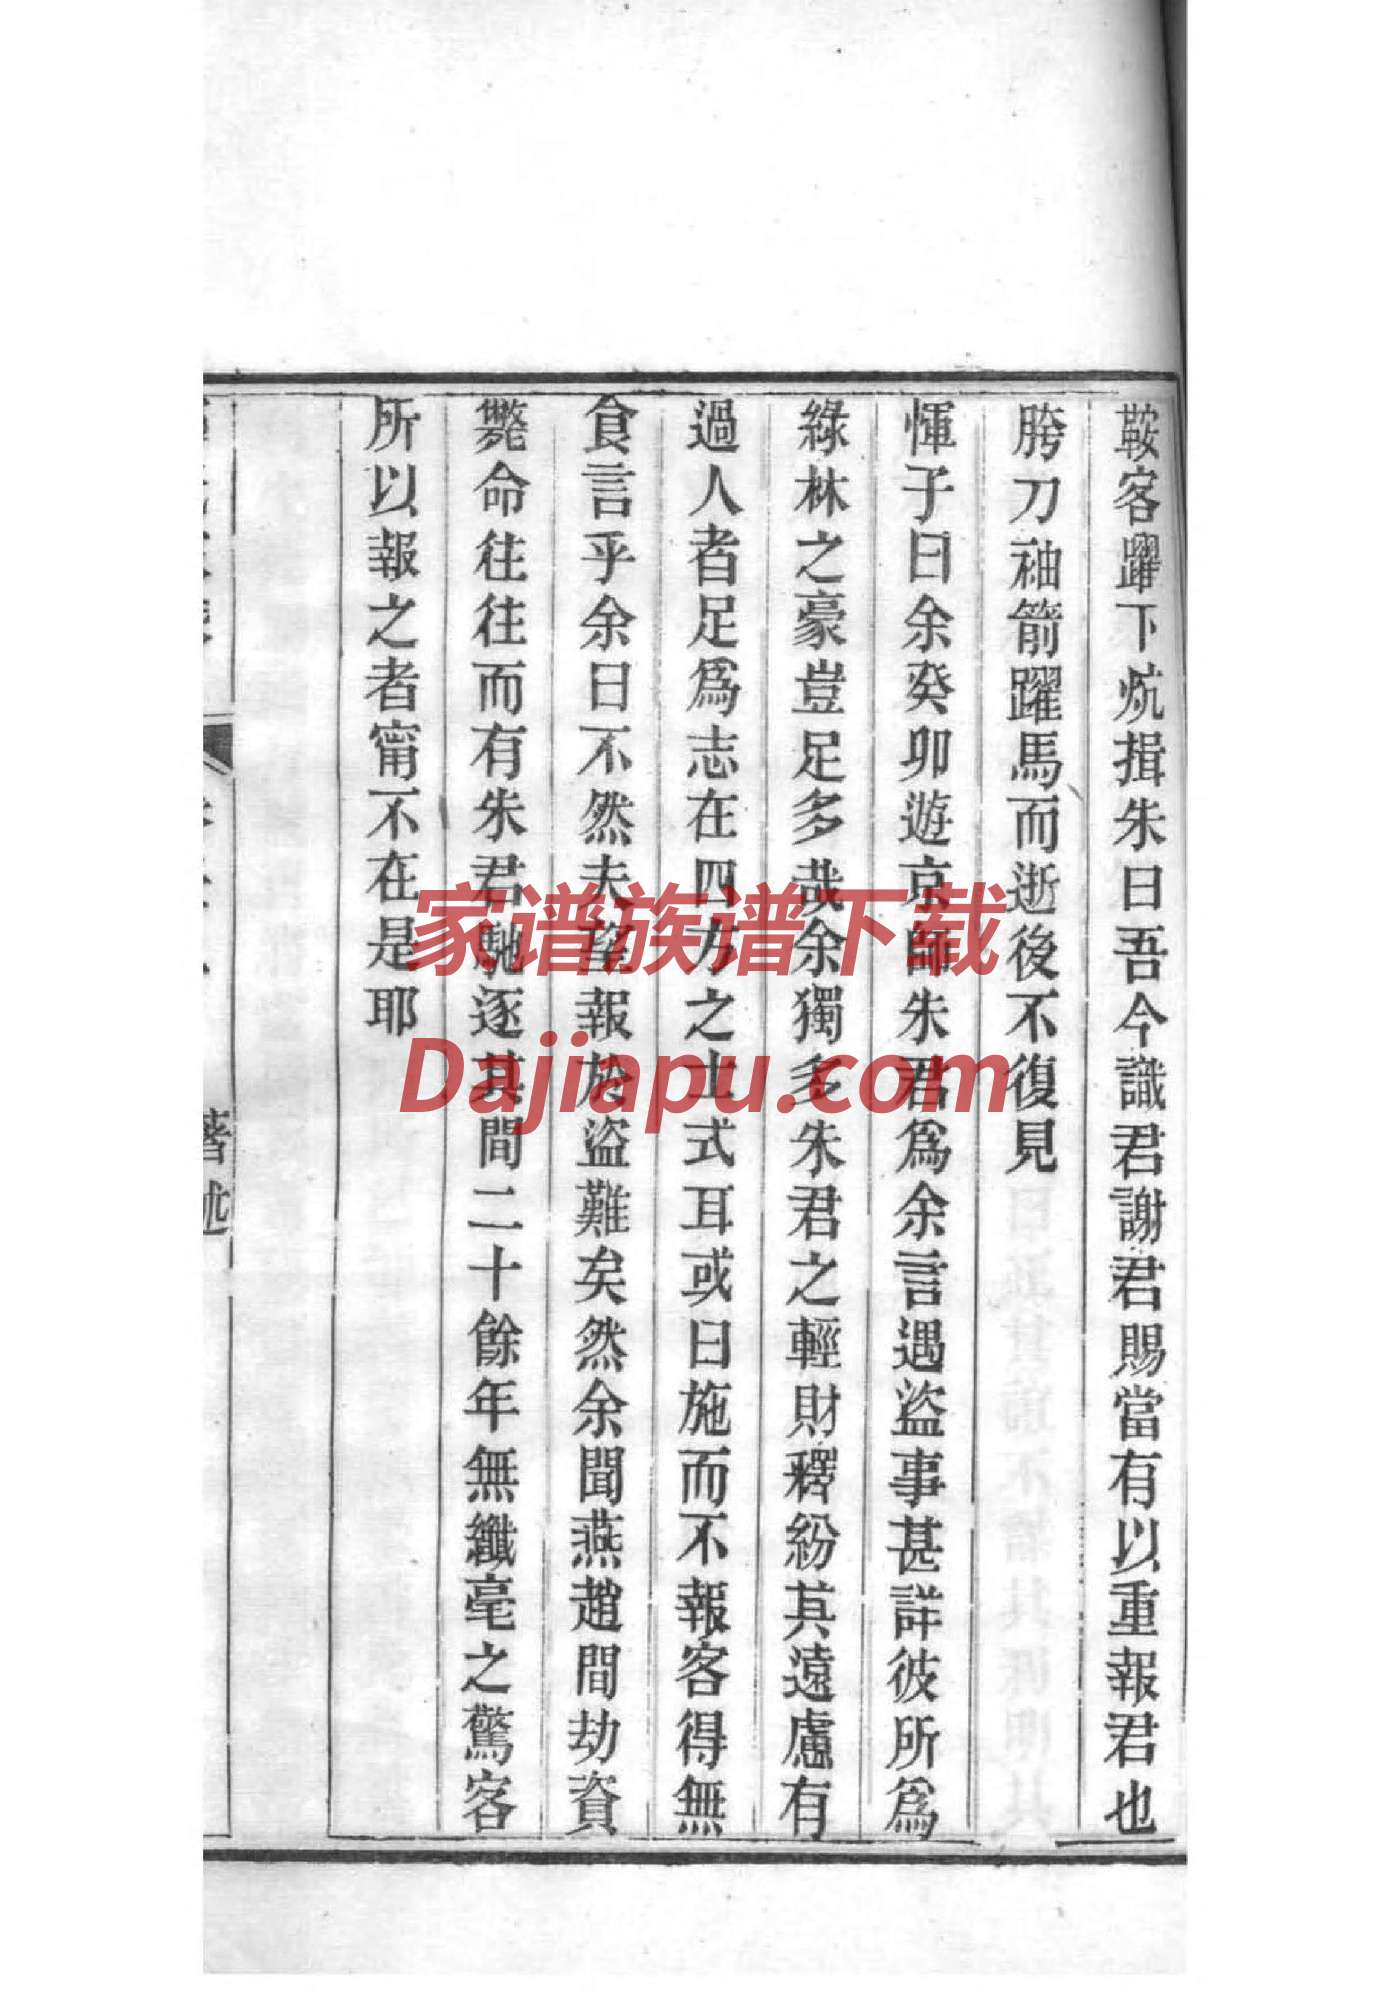 鞍客躍下炕揖朱曰吾今識君謝君賜當有以重報君也
胯刀袖箭躍馬而逝後不復見
惲子曰余癸卯遊京師朱君爲余言遇盜事甚詳彼所爲
綠林之豪豈足多哉余獨多朱君之輕財釋紛其遠慮有
過人者足爲志在四方之士式耳或曰施而不報客得無
食言乎余曰不然夫望報於盜難矣然余聞燕趙間劫資
斃命往往而有朱君馳逐其間二十餘年無纖毫之驚客
所以報之者甯不在是耶
著述
家谱族谱下载
Dajiapu.com